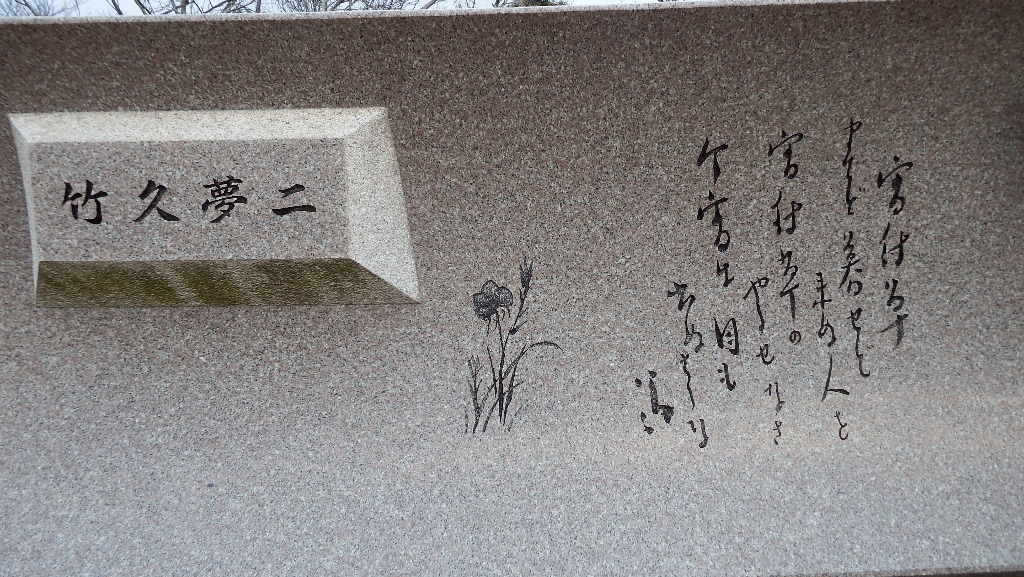 竹久夢二
宵待草
まてど暮せど
来ぬ人を
宵待草の
やるせなさ
今宵は月も
出ぬさうな